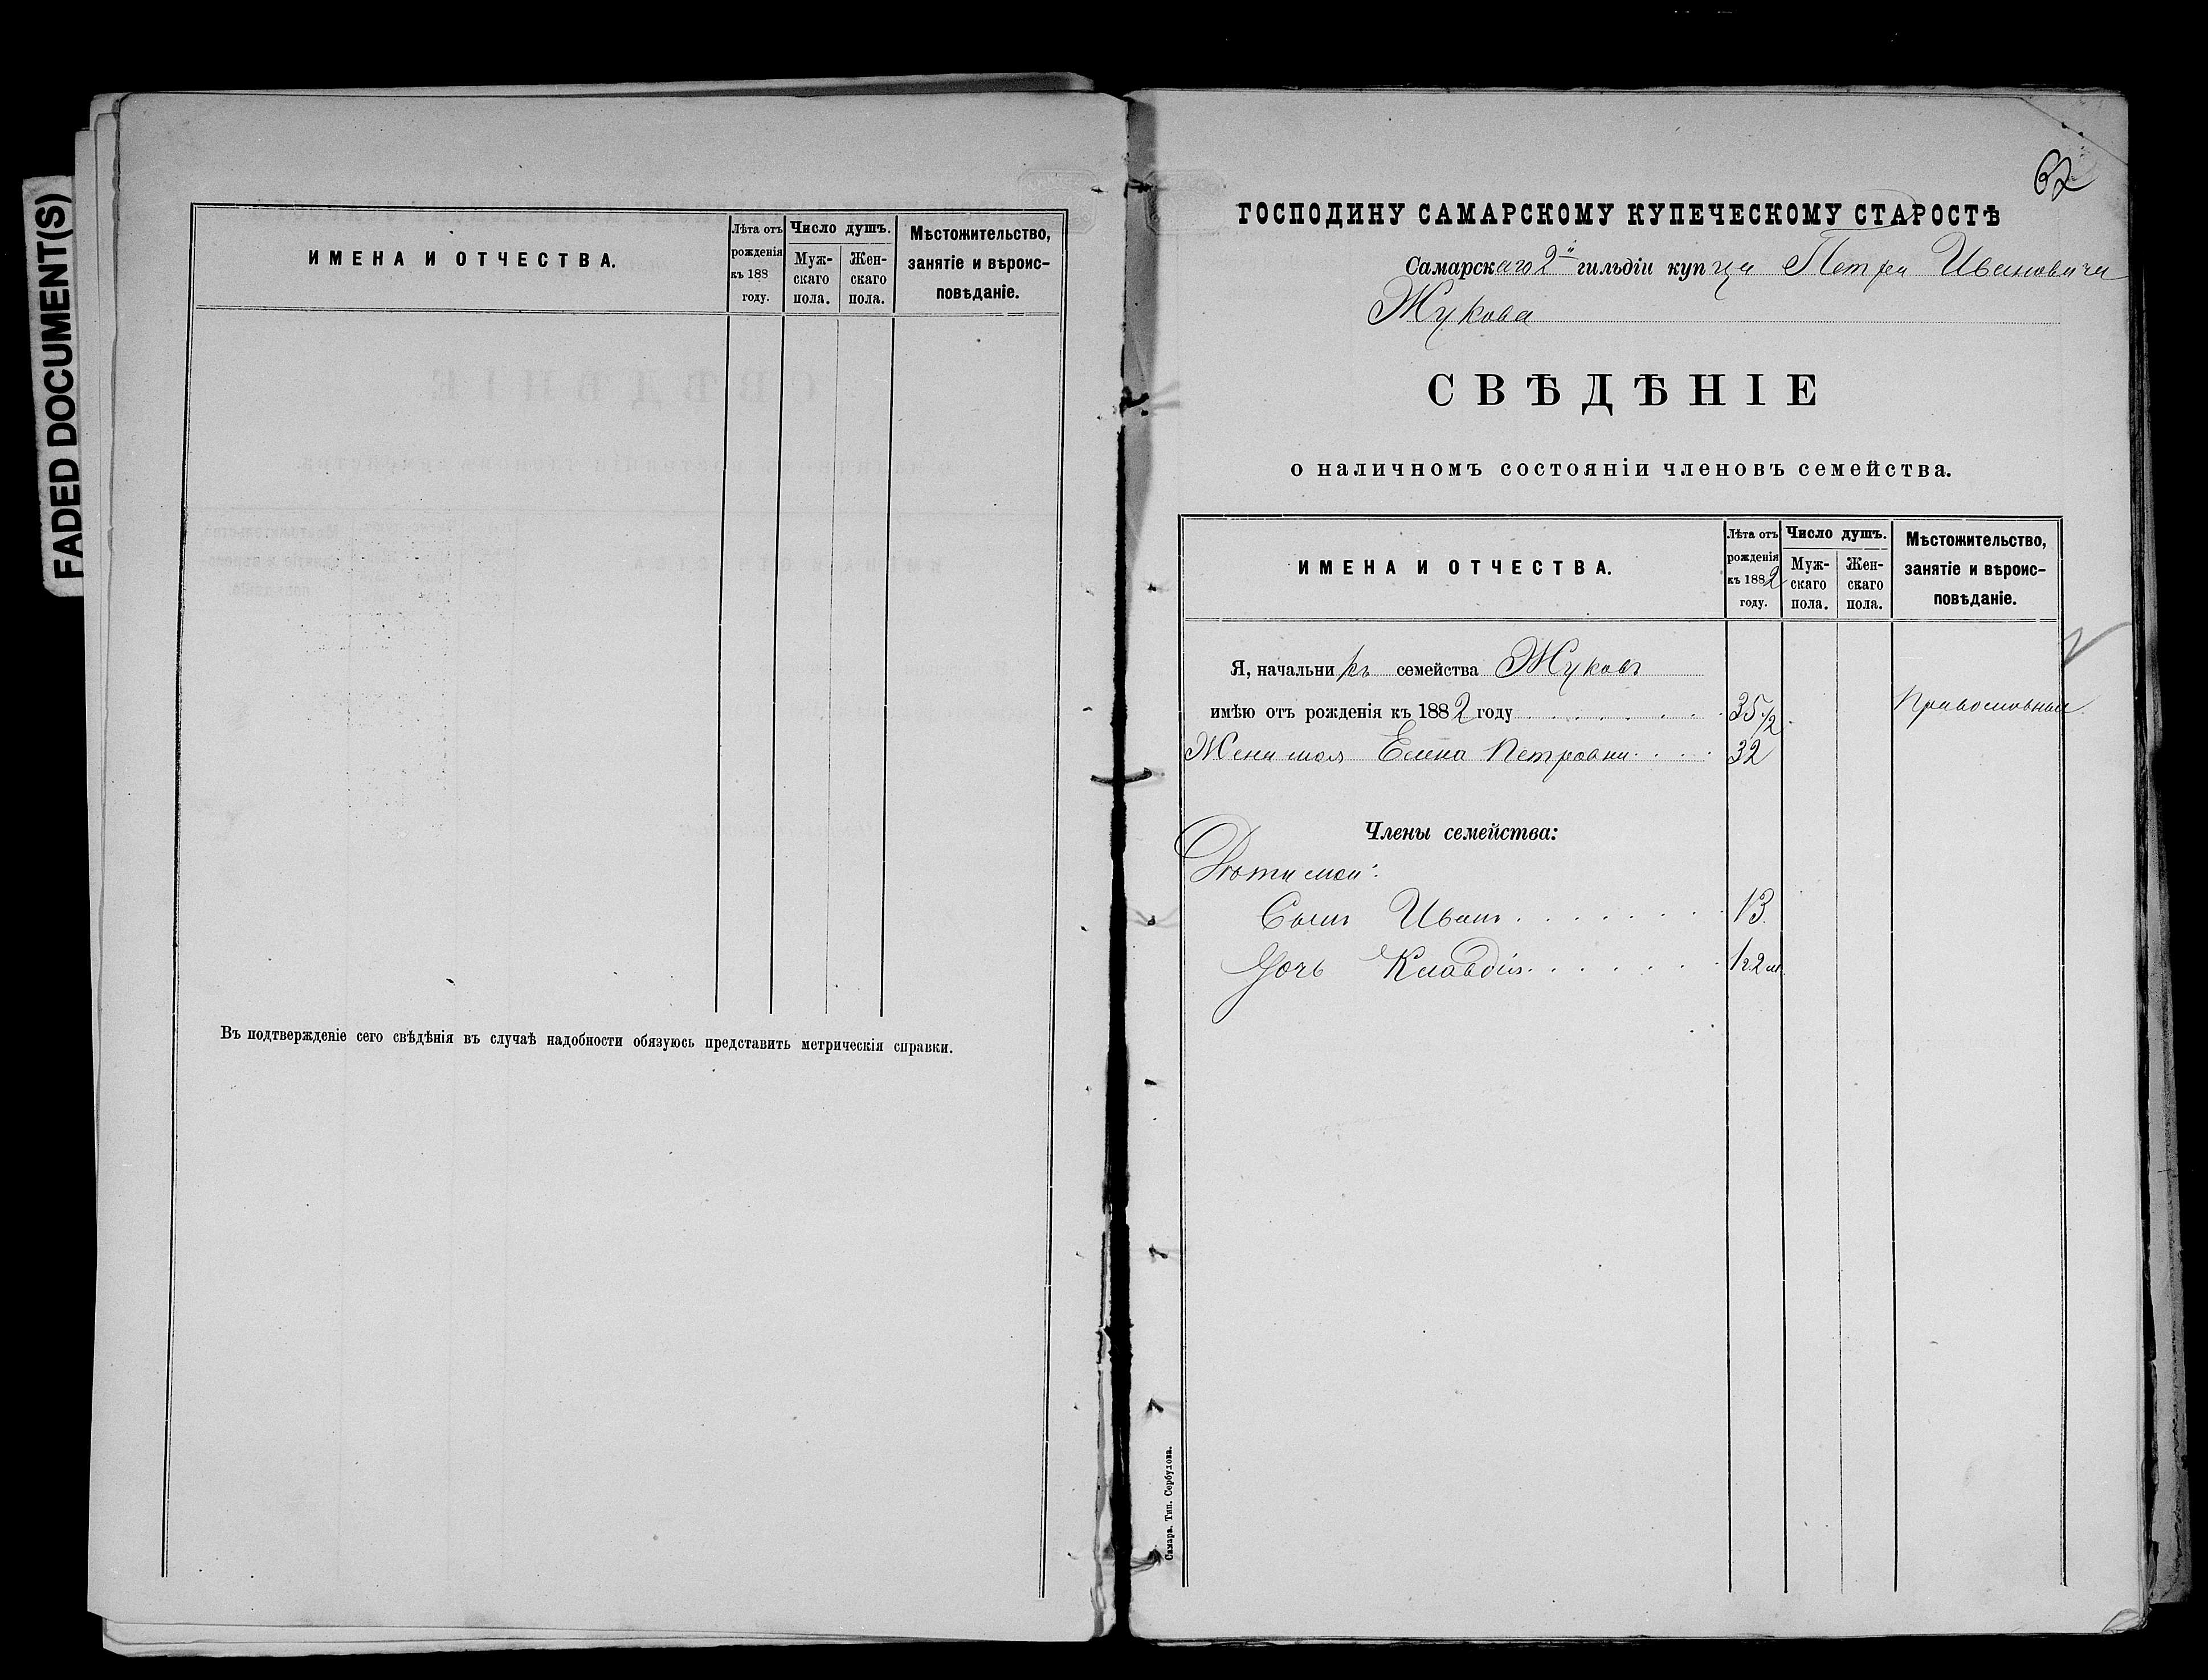 FADED DOCUMENT(S)
ИМЕНА И ОТЧЕСТВА.
Лѣта отъ
рожденія
къ 188
году.
Число душъ.
Муж-
скаго
пола.
Жен-
скаго
пола.
Мѣстожительство,
занятіе и вѣроис-
повѣданіе.
Въ подтвержденіе сего свѣдѣнія въ случаѣ надобности обязуюсь представить метрическія справки.
62
ГОСПОДИНУ САМАРСКОМУ КУПЕЧЕСКОМУ СТАРОСТѢ
Самарскаго 2й гильдіи купца Петра Ивановича
Жукова
СВѢДѢНІЕ
о наличномъ состояніи членовъ семейства.
ИМЕНА И ОТЧЕСТВА.
Лѣта отъ
рожденія
къ 1882
году.
Число душъ.
Муж-
скаго
пола.
Жен-
скаго
пола.
Мѣстожительство,
занятіе и вѣроис-
повѣданіе.
Я, начальникъ семейства Жуковъ
имѣю отъ рожденія къ 1882 году 35 1/2 Православный
Жена моя Елена Петровна 32
Члены семейства:
Дѣти мои:
Сынъ Иванъ 13
Дочь Клавдія 1 г. 2 м.
Самара. Тип. Сербулова.